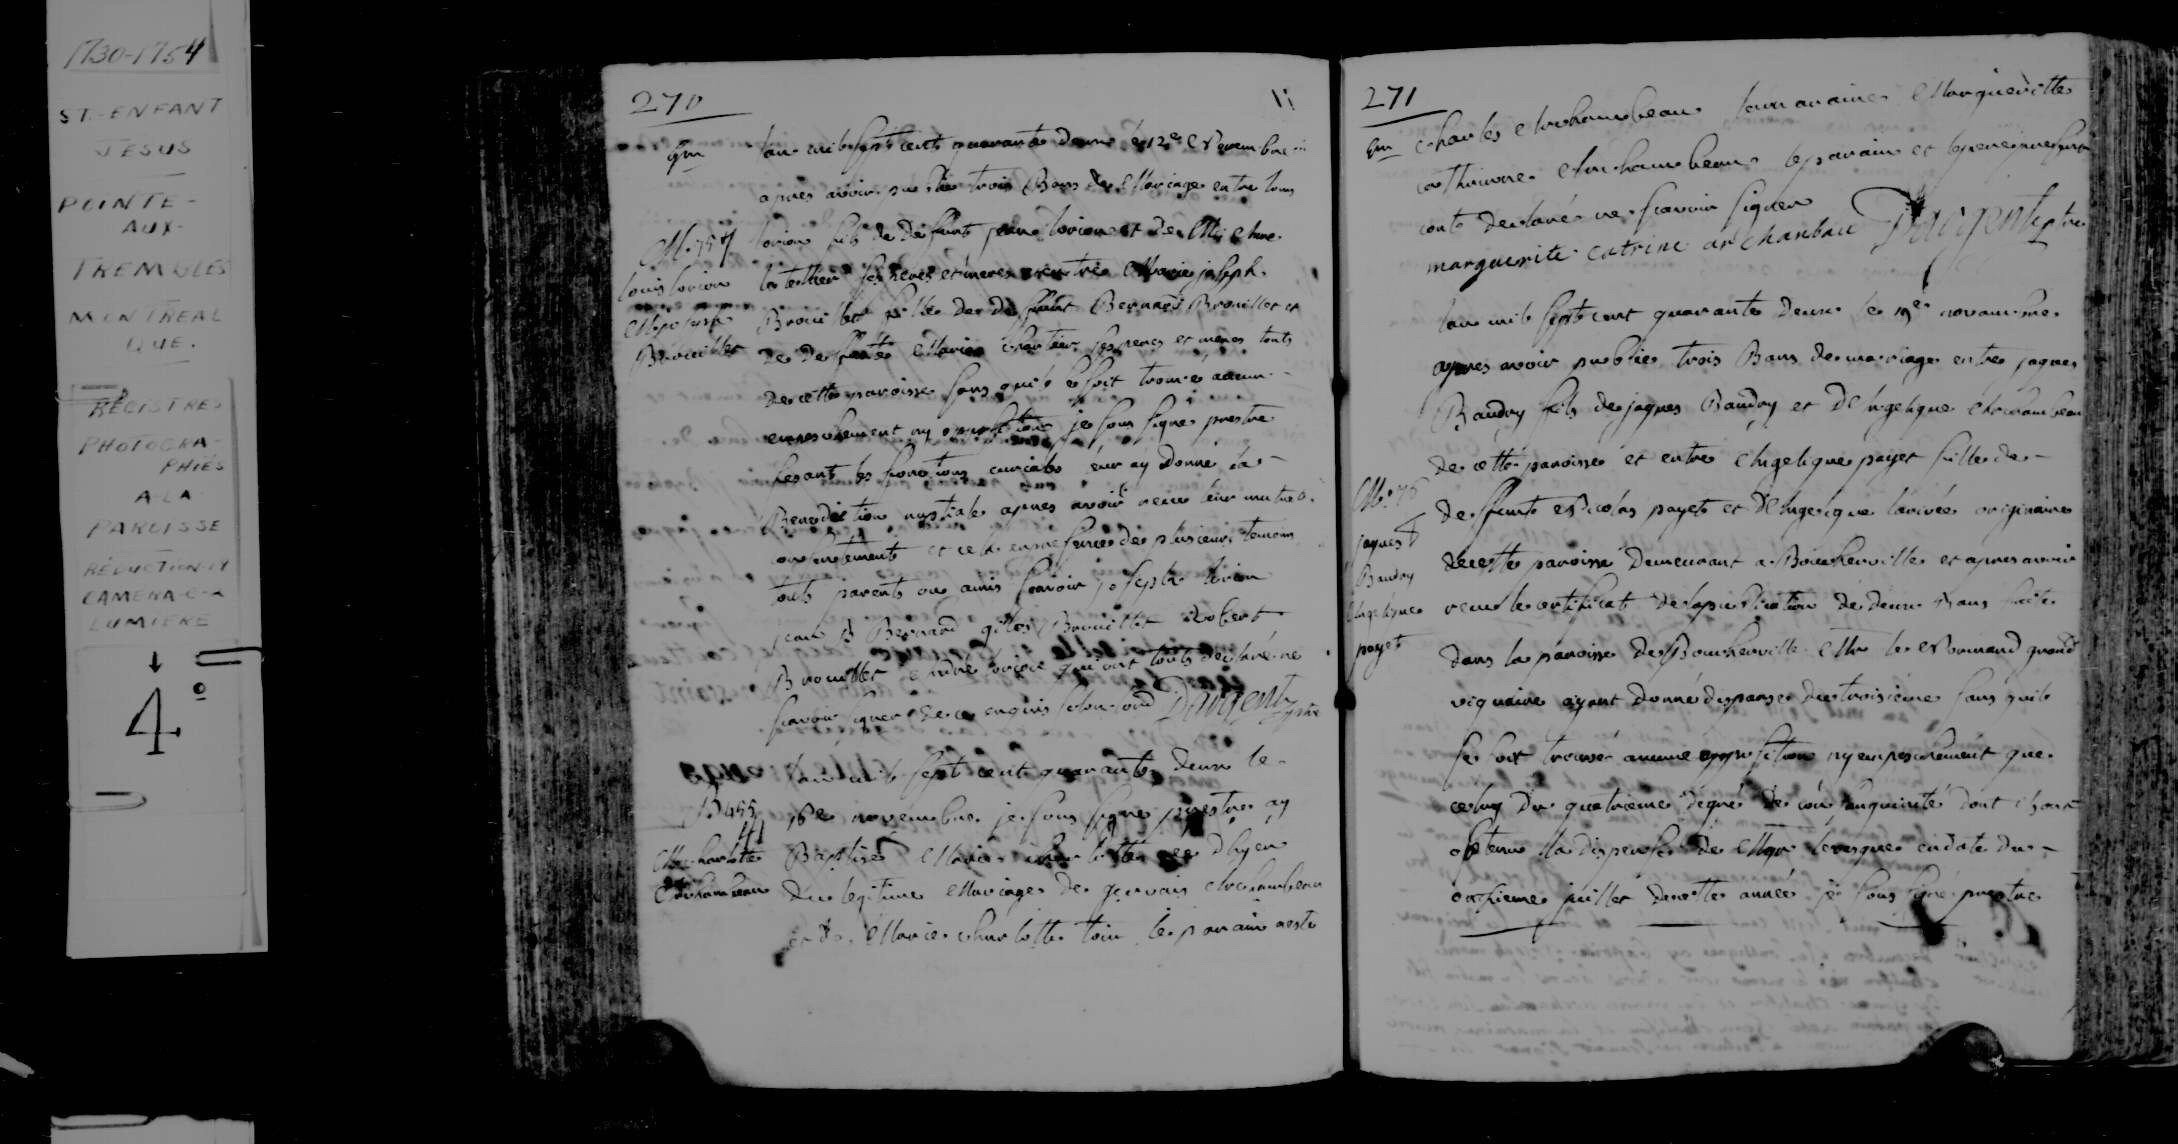 1730-1754
ST-ENFANT
JESUS
POINTE-
AUX-
TREMBLES
MONTREAL
QUE.
REGISTRES
PHOTOGRA-
PHIÉS
A LA
PAROISSE
RÉDUCTION
CAMERA
LUMIERE
4º
270
lan mil sept cent quarante deux le 12e Novembre
apres avoir publie trois Bans de Mariage entre louis
M. 75 lorion fils de deffunt jean lorion et de
louis lorion ses peres et meres et entre Marie joseph
Brouillet fille de deffunt Bernard Brouillet et
Brouillet de deffunte Marie chartier ses peres et meres touts
de cette paroisse sans quil se soit trouvé aucun
empeschement ny opposition je sous signé prestre
fesant les fonctions curiales leur ay donné la
Benediction nuptiale apres avoir receu leur mutuel
consentement et cela en presence de plusieurs temoins
touts parents ou amis scavoir joseph lorion
jean B Bernard gilles Brouillet Robert
Brouillet André lorion qui ont touts declaré ne
scavoir signer de ce enquis selon lord Dargent ptre
lan mil sept cent quarante deux le
B455 16e novembre je sous signé prestre ay
M. charlotte Baptisé Marie charlotte née dhyer
Archambeau du legitime Mariage de gervais Archambeau
et de Marie charlotte toin le parain a esté
271
charles Archambeau la maraine Marguerite
catherine Archambeau le parain et le pere
ont declaré ne scavoir signer
marguerite catrine archanbau Dargent ptre
lan mil sept cent quarante deux le 19e novembre
apres avoir publié trois Bans de mariage entre jaques
Baudry fils de jaques Baudry et DAngelique Archambeau
de cette paroisse et entre Angelique payet fille de
M. 76 deffunt Nicolas payet et DAngelique originaire
jaques de cette paroisse demeurant a Boucherville et apres avoir
Baudry
Angelique receu le certificat de la publication de deux Bans faite
payet dans la paroisse de Boucherville Mr le Normand grand
viquaire ayant donné dispanse du troisieme sans quil
se soit trouvé aucune opposition ny empeschement que
celuy du quatrieme degré de consanguinité dont ils ont
obtenu la dispense de Mgr levesque en date du
onzieme juillet de cette année je sous signé prestre